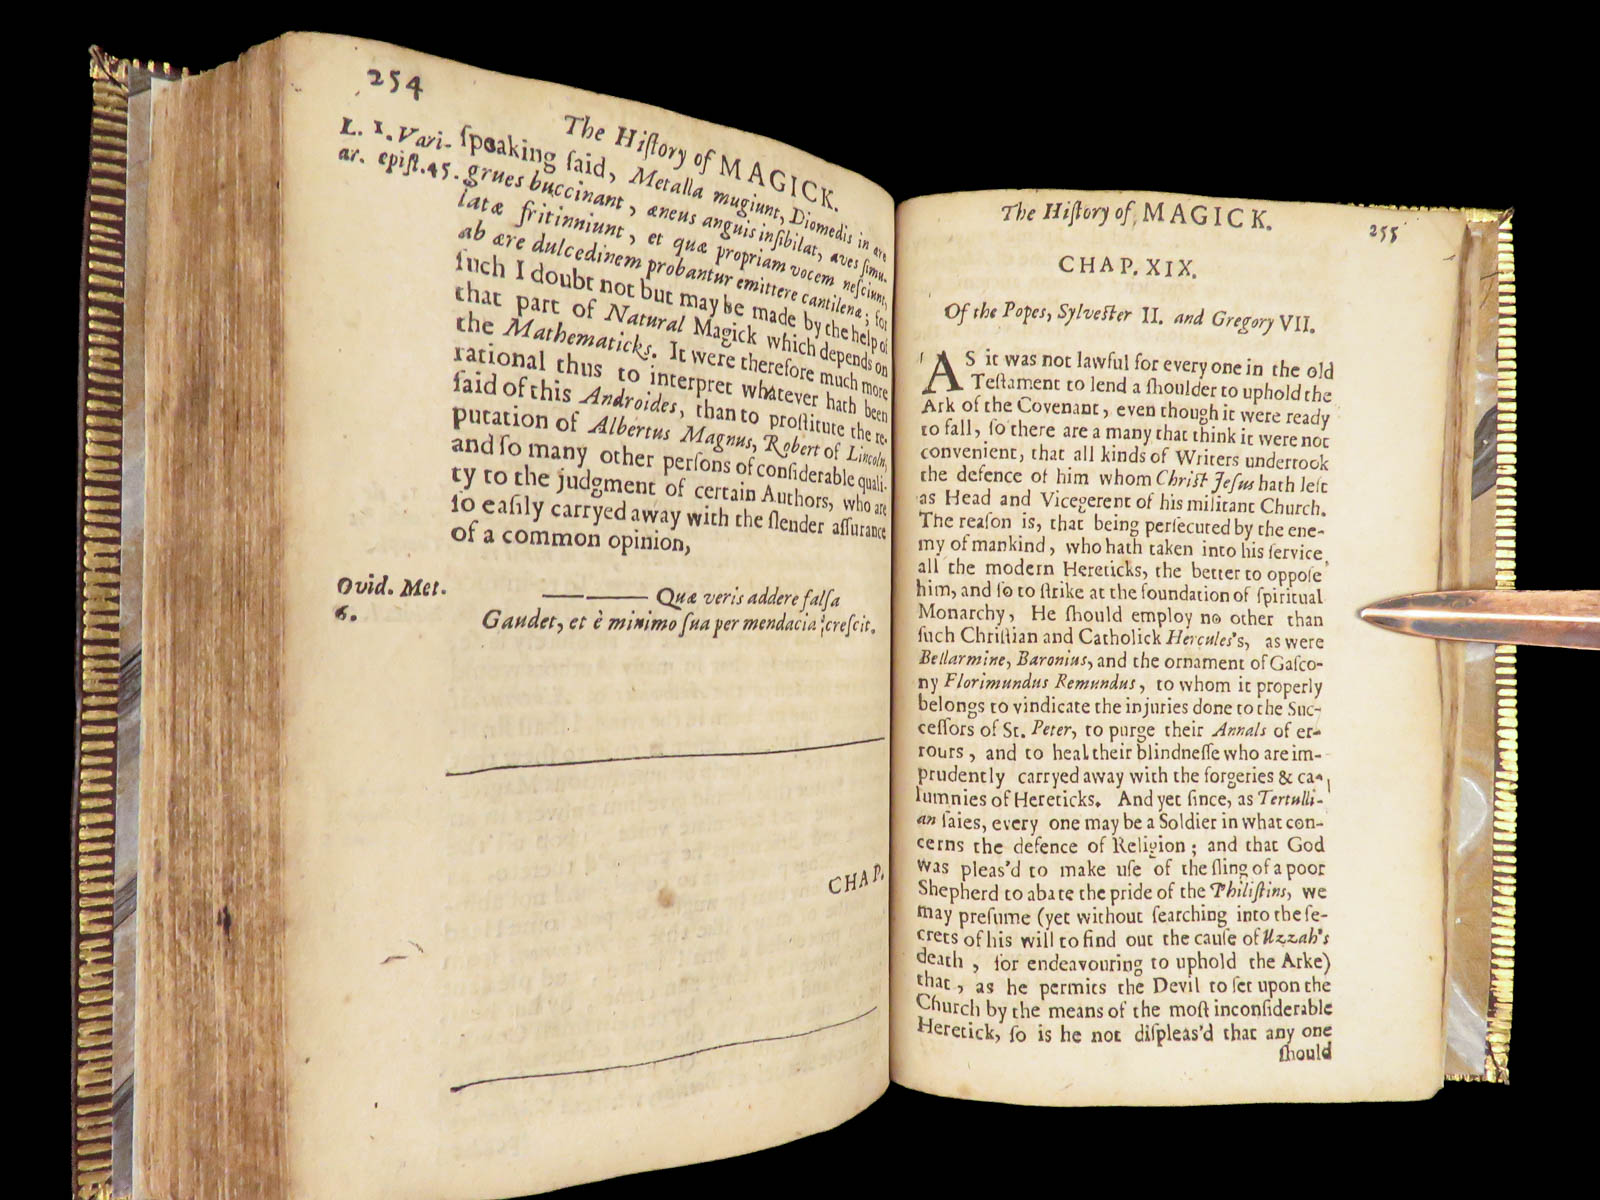 254
The Hiſtory of MAGICK.
L. 1. Vari-
ar. epiſt. 45.
ſpeaking ſaid, Metalla mugiunt, Diomedis in ære
grues buccinant, æneus anguis inſibilat, aves ſimu-
latæ fritinniunt, et quæ propriam vocem neſciunt,
ab ære dulcedinem probantur emittere cantilenæ; for
ſuch I doubt not but may be made by the help of
that part of Natural Magick which depends on
the Mathematicks. It were therefore much more
rational thus to interpret whatever hath been
ſaid of this Androides, than to proſtitute the re-
putation of Albertus Magnus, Robert of Lincoln,
and ſo many other perſons of conſiderable quali-
ty to the judgment of certain Authors, who are
ſo eaſily carryed away with the ſlender aſſurance
of a common opinion,
Ovid. Met.
6.
—— —— Quæ veris addere falſa
Gaudet, et è minimo ſua per mendacia creſcit.
CHAP.
The Hiſtory of MAGICK.
255
CHAP. XIX.
Of the Popes, Sylveſter II. and Gregory VII.
AS it was not lawful for every one in the old
Teſtament to lend a ſhoulder to uphold the
Ark of the Covenant, even though it were ready
to fall, ſo there are a many that think it were not
convenient, that all kinds of Writers undertook
the defence of him whom Chriſt Jeſus hath left
as Head and Vicegerent of his militant Church.
The reaſon is, that being perſecuted by the ene-
my of mankind, who hath taken into his ſervice
all the modern Hereticks, the better to oppoſe
him, and ſo to ſtrike at the foundation of ſpiritual
Monarchy, He ſhould employ no other than
ſuch Chriſtian and Catholick Hercules's, as were
Bellarmine, Baronius, and the ornament of Gaſco-
ny Florimundus Remundus, to whom it properly
belongs to vindicate the injuries done to the Suc-
ceſſors of St. Peter, to purge their Annals of er-
rours, and to heal their blindneſſe who are im-
prudently carryed away with the forgeries & ca-
lumnies of Hereticks. And yet ſince, as Tertulli-
an ſaies, every one may be a Soldier in what con-
cerns the defence of Religion; and that God
was pleas'd to make uſe of the ſling of a poor
Shepherd to abate the pride of the Philiſtins, we
may preſume (yet without ſearching into the ſe-
crets of his will to find out the cauſe of Uzzah's
death, for endeavouring to uphold the Arke)
that, as he permits the Devil to ſet upon the
Church by the means of the moſt inconſiderable
Heretick, ſo is he not diſpleas'd that any one
ſhould